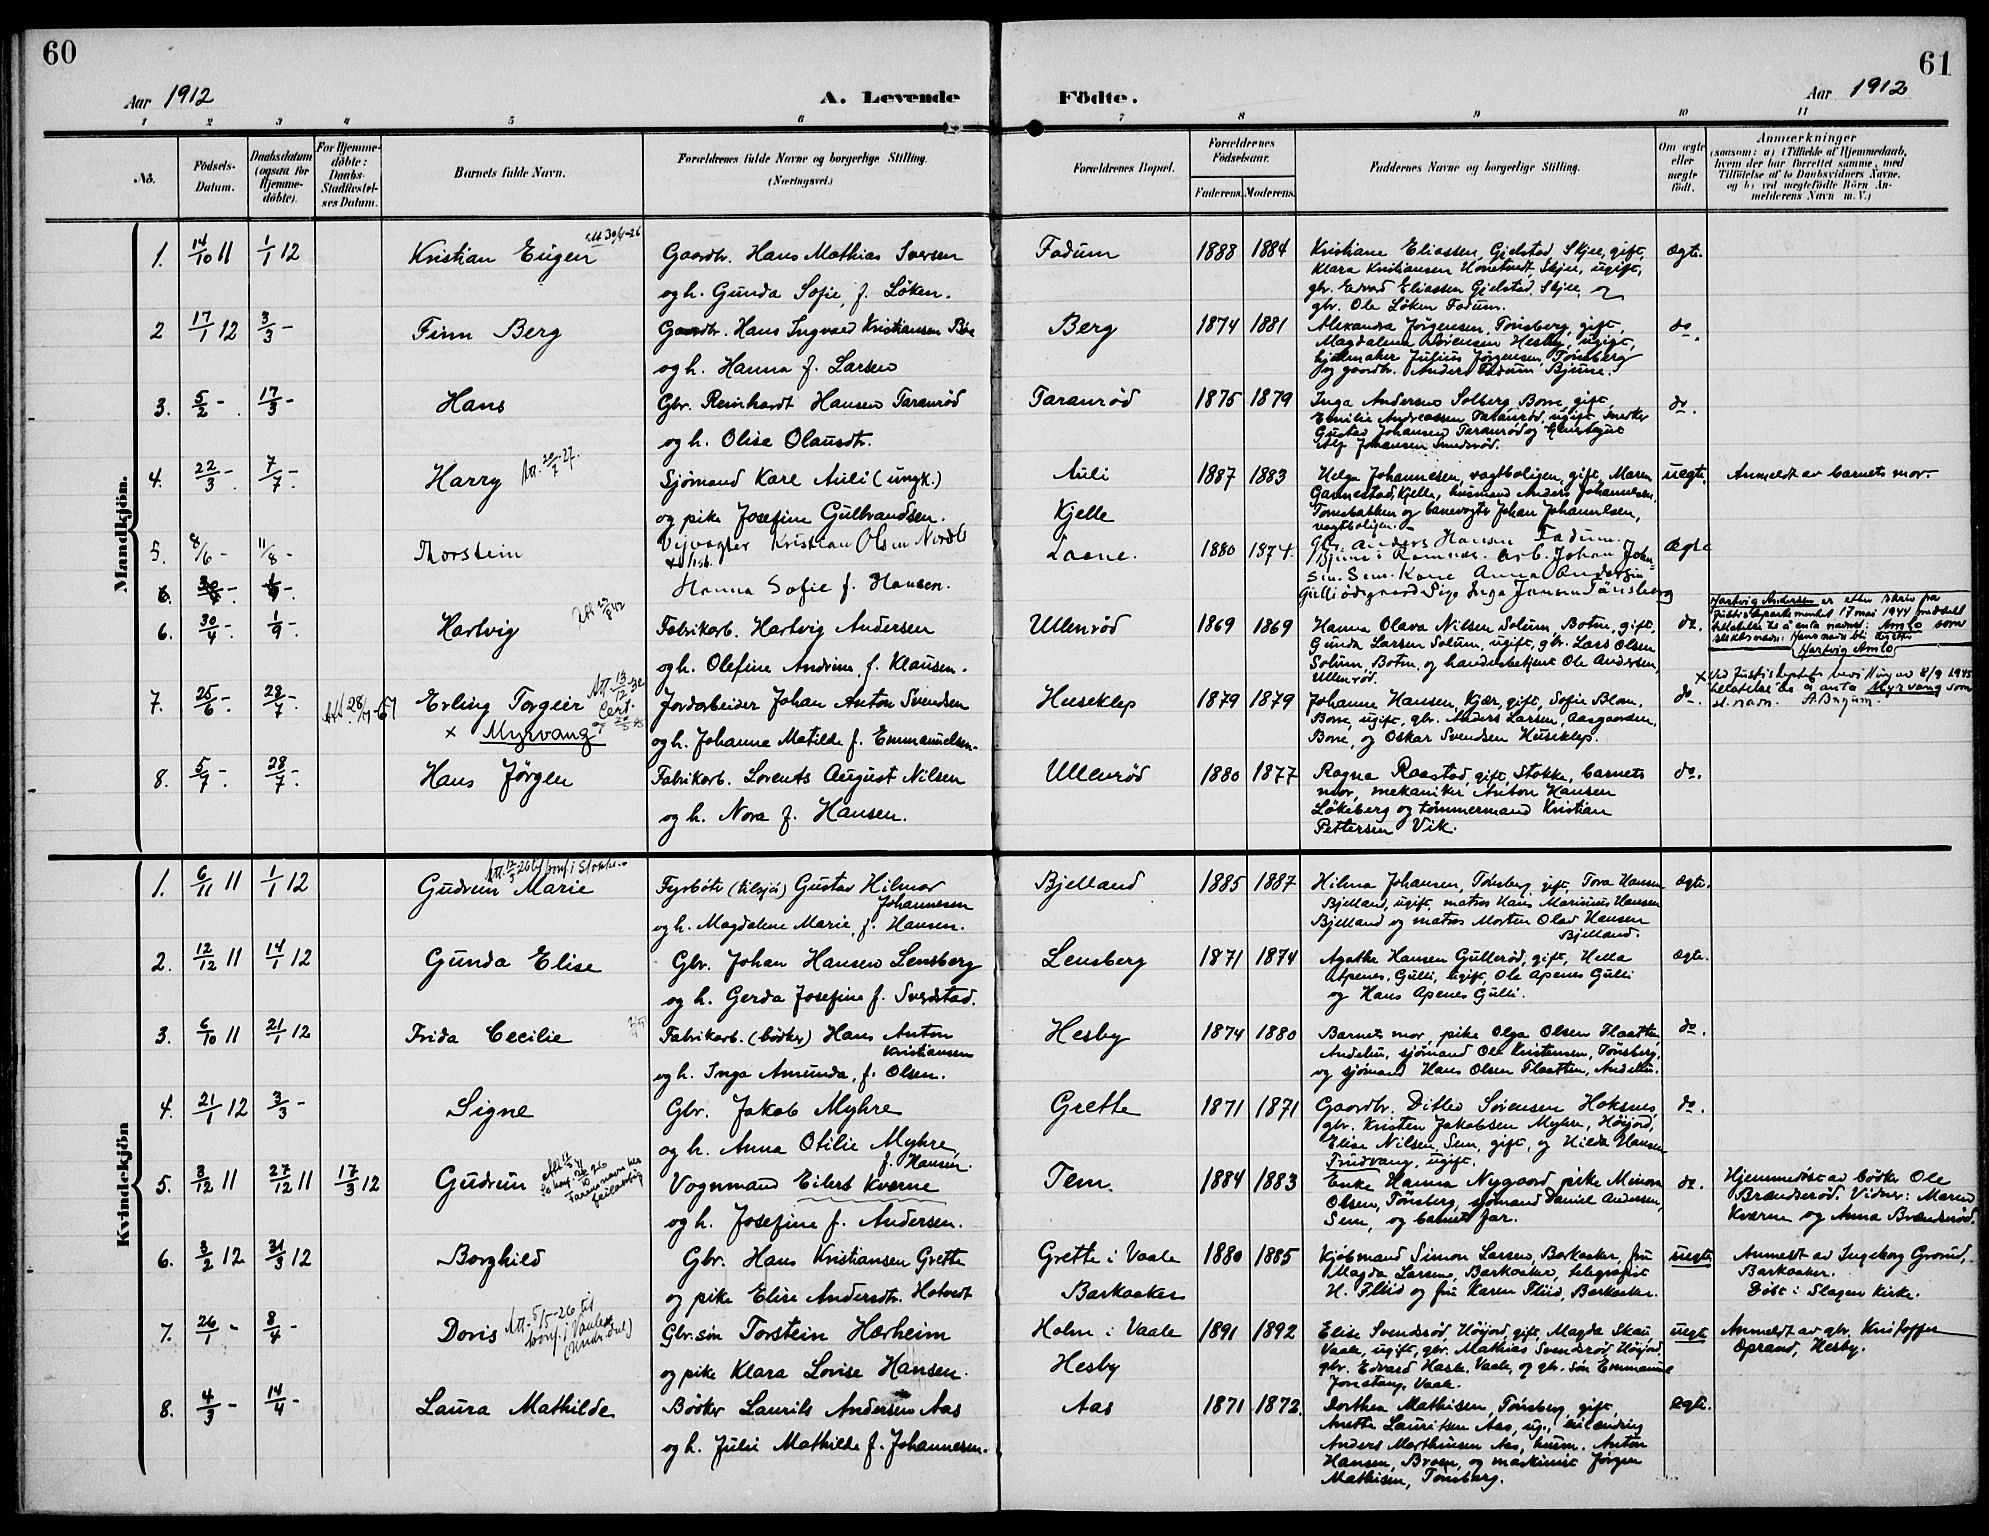 60
61
Aar 1912
A. Levende
Födte.
Aar 1912
1 2 3 4 5 6 7 8 9 10 11
No.
Födsels-
Datum.
Daabsdatum
(ogsaa for
Hjemme-
döbte).
For Hjemme-
döbte:
Daabs-
Stadfæstel-
ses Datum.
Barnets fulde Navn.
Forældrenes fulde Navne og borgerlige Stilling.
(Næringsvei.)
Forældrenes Bopæl.
Forældrenes
Födselsaar.
Faderens.
Moderens.
Faddernes Navne og borgerlige Stilling.
Om ægte
eller
uægte
födt.
Anmærkninger
(saasom: a) i Tilfælde af Hjemmedaab,
hvem der har forrettet samme, med
Tilföielse af to Daabsvidners Navne.
og b) ved uægtefödte Börn An-
melderens Navn m. V.)
Mandkjön.
1. 14/10 11 1/1 12 Kristian Eugen
Gaardbr. Hans Mathias Iversen
og h. Gunda Sofie, f. Løken.
Fadum 1888 1884
Kristiane Eliassen, Gjelstad, Skjee, gift,
Klara Kristiansen Skjee, ugift,
gbr. Edvard Eliassen Gjelstad, Skjee, og
gbr. Ole Løken Fadum.
ægte.
2 17/1 12 3/3 - Finn Berg
Gaardbr. Hans Ingvald Kristiansen
og h. Hanna f. Larsen
Berg 1874 1881
Alexandra Jørgensen, Tønsberg, gift,
Magdalena Sørensen Hesby, ugift,
Julius Jørgensen, Tønsberg
og gaardbr. Anders Fadum Bjune.
do.
3. 5/2 - 17/3 - Hans
Gbr. Reinhardt Hansen Taranrød
og h. Olise Olausdtr.
Taranrød 1875 1879
Inga Andersen Solberg Borre, gift,
Emilie Andreassen Taranrød, ugift, snekker
Gustav Johansen Taranrød og
Alf Johansen
do.
4. 22/3 - 7/7 - Harry Att. 20/7-27.
Sjømand Karl Auli (ungk.)
og pike Josefine Gulbrandsen.
Auli
Kjelle
1887 1883
Helga Johannesen, vagtboligen, gift, Maren
Gannestad, Kjelle, husmand Anders Johannesen,
Tomsbakken og banevogter Johan Johannesen,
vagtboligen.
uegte. Anmeldt av barnets mor.
5. 8/6 - 11/8 - Thorstein
Veivogter Kristian Olsen
Hanna Sofie f. Hansen.
1880 1874.
Gbr. Anders Hansen Fadum.
Arb. Johan John-
sen. Sem. Kone Anna Andersen
Gulliødegaard Inga Jensen Tønsberg
Ægte
6.
6. 30/4 - 1/9 - Hartvig
Fabrikarb. Hartvig Andersen
og h. Olefine Andrine f. Klausen.
Ullenrød 1869 1869
Hanna Olava Nilsen Solum Botne, gift,
Gunda Larsen Solum, ugift, gbr. Lars Olsen
Solum, Botne, og handelsbetjent Ole Andersen,
Ullenrød.
do.
Hartvig Andersen er etter skriv fra
Justisdepartementet 17 mai 1944 meddelt
tillatelse til å anta navnet: Amlo som
slektsnavn: Hans navn bli derfor
Hartvig Amlo
7. 25/6 - 28/7 - Erling Torgeir Att. 13/12-32
Cert.
x Myrvang
Jordarbeider Johan Anton Svendsen
og h. Johanne Matilde f. Emmanuelsen.
Huseklep 1879 1879
Johanne Hansen, Kjær, gift, Sofie Blom,
Borre, ugift, gbr. Anders Larsen, Aasgaarden,
Borre, og Oskar Svendsen Huseklep.
do.
x Ved Justisdeptets bevilling av 8/9 1945
tillatelse til å anta Myrvang som
sl. navn.
8. 5/7 - 28/7 - Hans Jörgen
Fabrikarb. Lorents August Nilsen
og h. Nora f. Hansen.
Ullenrød 1880 1877
Ragna Raastad, gift, Stokke, barnets
mor, mekaniker Anton Hansen
Løkeberg og tømmermand Kristian
Pettersen Vik.
do.
Kvindekjön
1. 6/11 11 1/1 12 Gudrun Marie
Fyrbøter (tilsjøs) Gustav Hilmar
Johannesen
og h. Magdalene Marie, f. Hansen.
Bjelland 1885 1887
Hilma Johansen, Tønsberg, gift, Tora Hansen
Bjelland, ugift, matros Hans Marinius Hansen
Bjelland og matros Morten Olav Hansen
Bjelland.
ægte.
2. 12/12 11 14/1 12 Gunda Elise
Gbr. Johan Hansen Lensberg
og h. Gerda Josefine f. Sverdstad.
Lensberg 1871 1874
Agathe Hansen Gullerød, gift, Hella
Apenes, Gulli, ugift, Ole Apenes Gulli
og Hans Apenes Gulli.
ægte.
3. 6/10 11 21/1 12 Frida Cecilie
Fabrikarb. (bødker) Hans Anton
Kristiansen
og h. Inga Amunda, f. Olsen.
Hesby 1874 1880
Barnets mor, pike Olga Olsen Flaatten
Andebu, sjømand Ole Kristensen, Tønsberg,
og sjømand Hans Olsen Flaatten, Andebu.
do.
4. 21/1 12 3/3 - Signe
Gbr. Jakob Myhre
og h. Anna Otilie Myhre,
f. Hansen.
Grette 1871 1871
Gaardbr. Ditlev Sørensen Hoksnes,
gbr. Kristen Jakobsen Myhre, Høijord,
Elise Nilsen, Sem, gift, og Hilda Hansen
Trudvang, ugift.
do.
5. 3/12 11 27/12 11 17/3 12 Gudrun
Vognmand Eilert Kverne
og h. Josefine f. Andersen.
Tem 1884 1883
Enke Hanna Nygaard, pike Minora
Olsen, Tønsberg, sjømand Daniel Andersen,
Sem, og barnets far.
do.
Hjemmedøbt av bødker Ole
Brændsrød. Vidner: Maren
Kværne og Anna Brændsrød.
6. 3/2 12 31/3 12 Borghild
Gbr. Hans Kristiansen Grette
og pike Elise Andersdtr. Hotvedt
Grette i Vaale
Barkaaker
1880 1885
Kjøbmand Simon Larsen, Barkaaker, fru
Magda Larsen, Barkaaker, telegrafist
H. Fluid og fru Karen Fluid, Barkaaker.
uegte
Anmeldt av Ingeborg Grorud,
Barkaaker.
Døbt i Slagen kirke.
7. 26/1 - 8/4 - Doris Att. 5/5-26 til
konf. i Vaale
Gbr. søn Torstein Hærheim
og pike Klara Lovise Hansen.
Holm i Vaale
Hesby
1891 1892
Elise Svendsrød, Høijord, gift, Magda Skau,
Vaale, ugift, gbr. Mathias Svendsrød Høijord,
gbr. Edvard Hasle Vaale, og gbr. søn Emmanuel
Vaale.
uegte
Anmeldt av gbr. Kristoffer
Oprand, Hesby.
8. 4/3 - 14/4 - Laura Mathilde
Bødker Laurits Andersen Aas
og h. Julie Mathilde f. Johannesen.
Aas 1871 1872.
Dorthea Mathisen, Tønsberg, gift,
Anette Lauritsen Aas, ug.,
Anders Marthinsen Aas, husm. Anton
Hansen, Broen, og maskinist Jørgen
Mathisen, Tønsberg.
ægte.